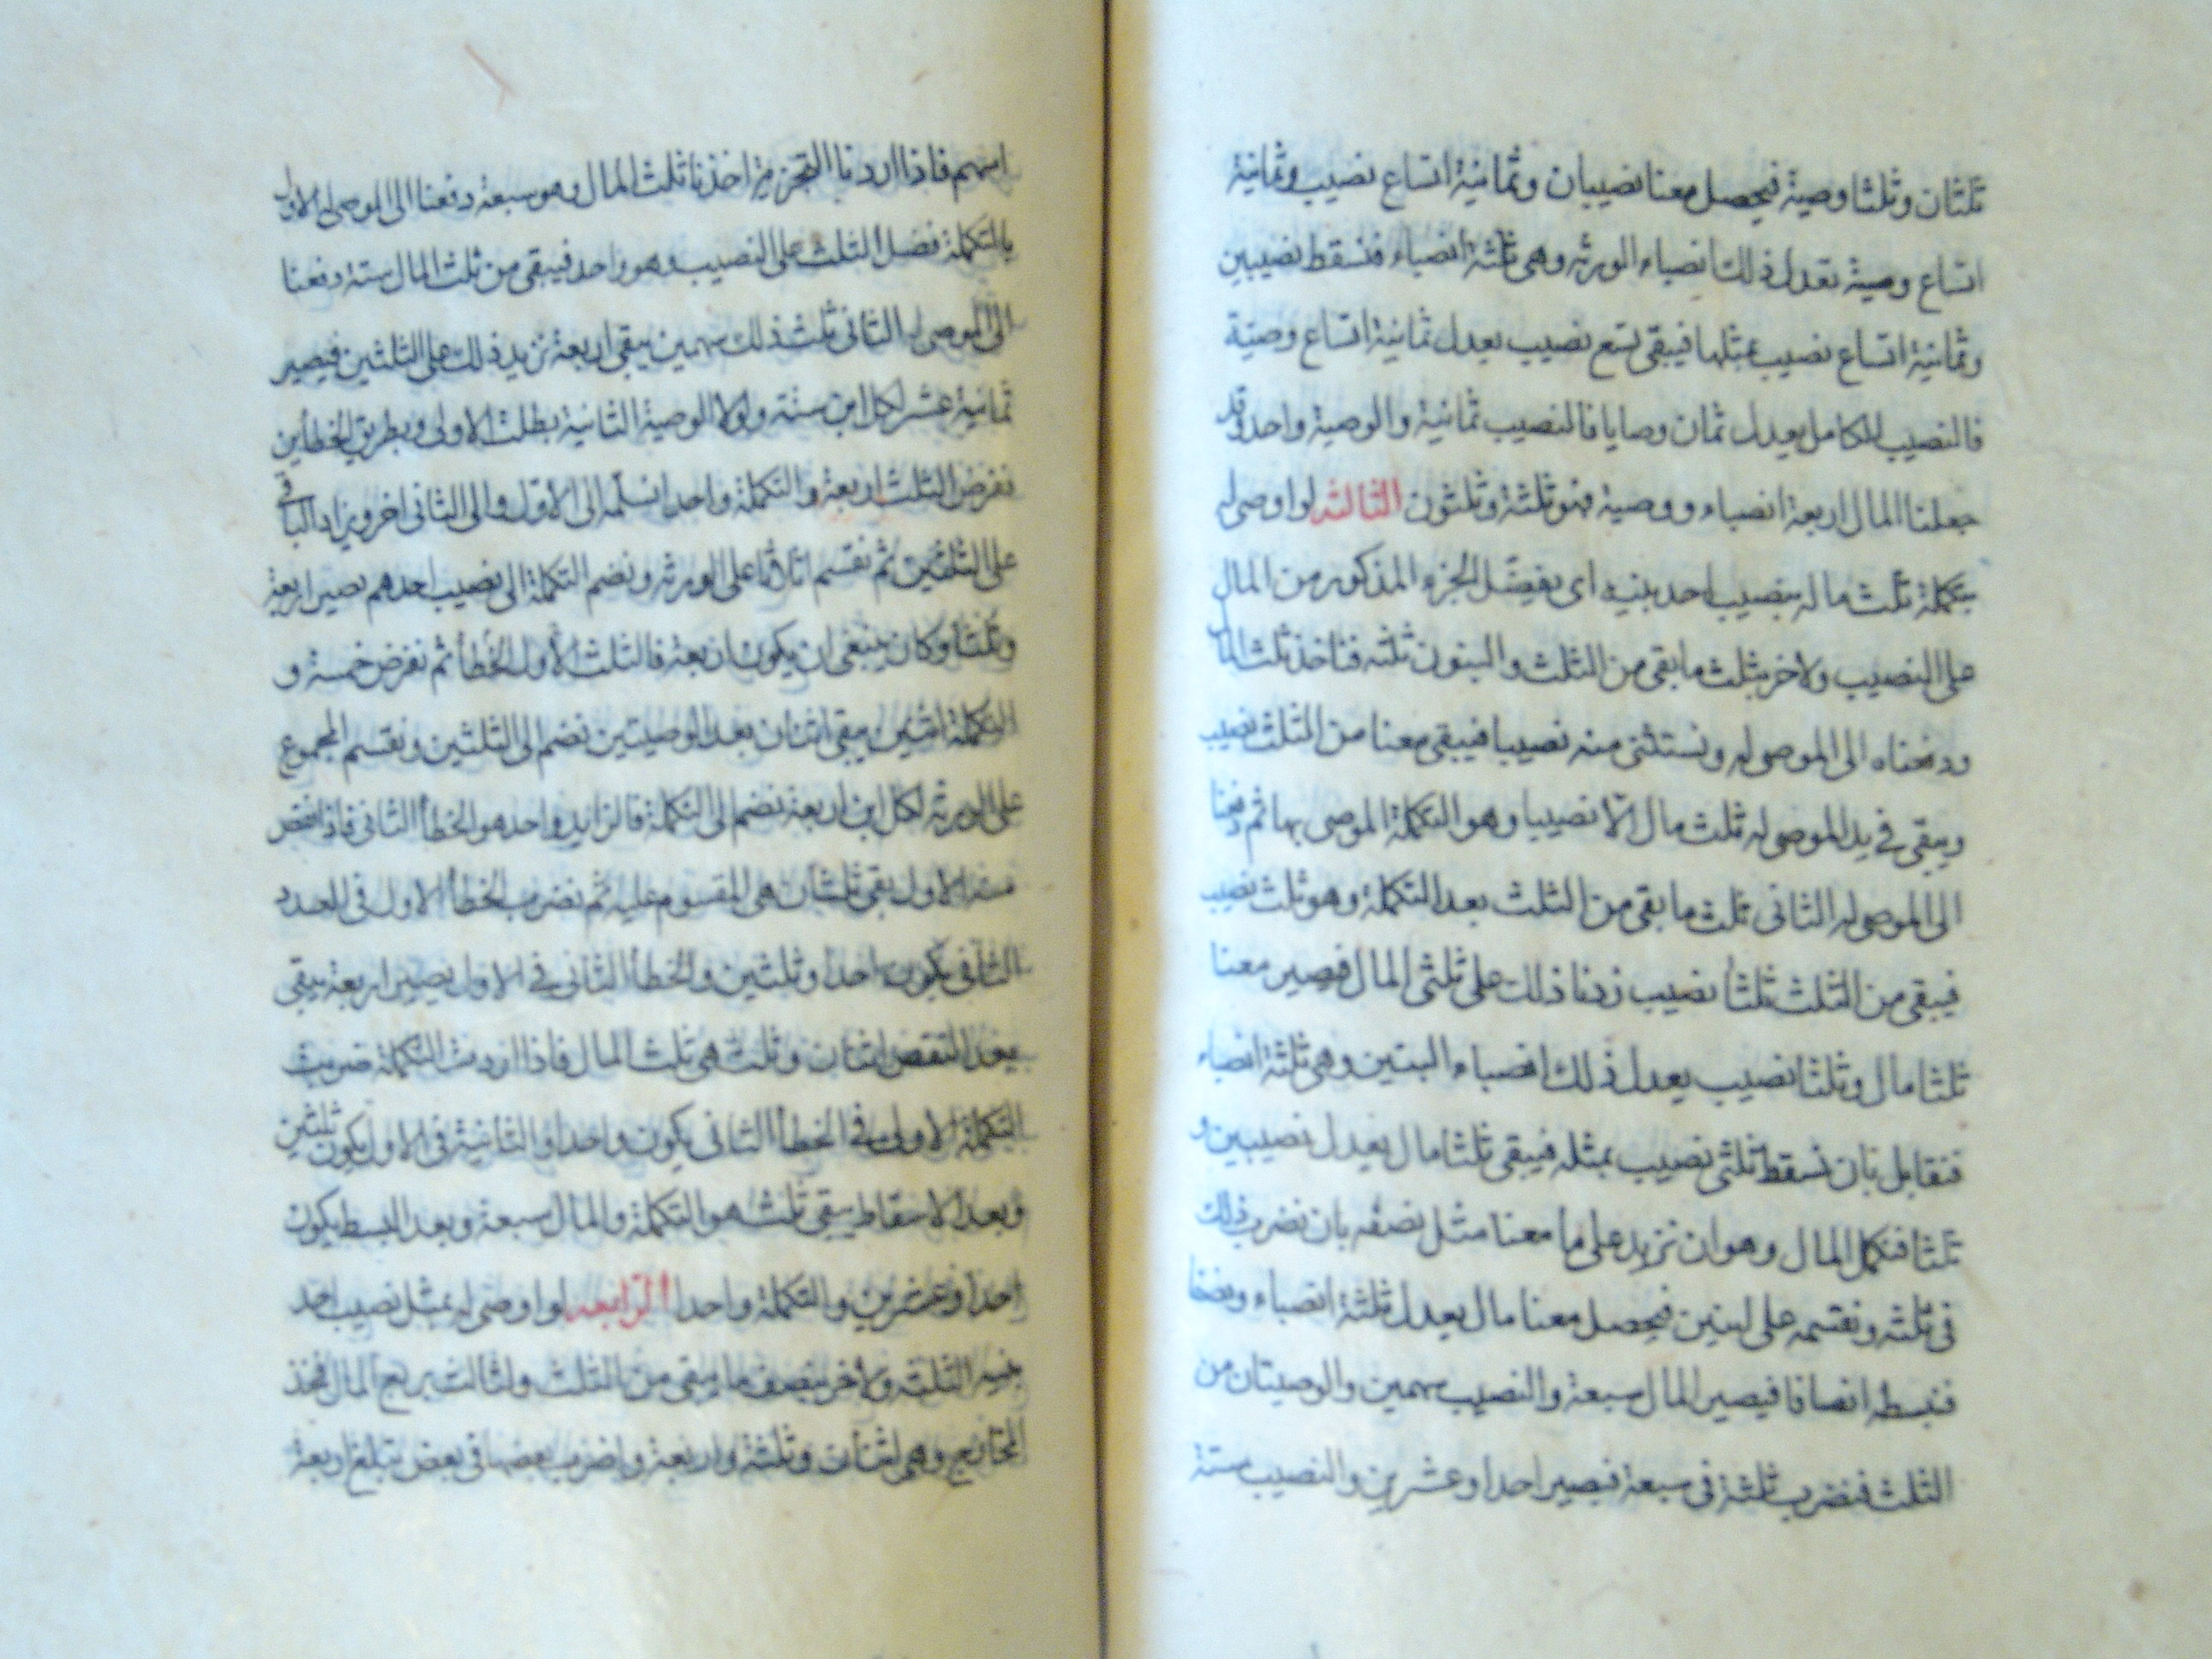 ثلثان وثلثا وصية فيحصل معنا نصيبان وثمانية اتساع نصيب وثمانية
اتساع وصية تعدل ذلك انصباء الورثه وهى ثلثة انصباء فنسقط نصيبين
وثمانية اتساع نصيب بمثلها فيبقى تسع نصيب يعدل ثمانية اتساع وصية
فالنصيب الكامل يعدل ثمان وصايا فالنصيب ثمانية والوصية واحد وقد
جعلنا المال اربعة انصباء ووصية فهو ثلثة وثلثون الثالثه لو اوصى له
بتكملة ثلث ماله بنصيب احد بنيه اى بفضل الجزء المذكور من المال
على النصيب ولاخر بثلث ما بقى من الثلث والبنون ثلثه فناخذ ثلث المال
ودفعناه الى الموصى له ونستثنى منه نصيبا فيبقى معنا من الثلث نصيب
ويبقى فى يد الموصى له ثلث مال الّا نصيبا وهو التكملة الموصى بها ثم دفعنا
الى الموصى له الثانى ثلث ما بقى من الثلث بعد التكملة وهو ثلث نصيب
فيبقى من الثلث ثلثا نصيب زدنا ذلك على ثلثى المال فيصير معنا
ثلثا مال وثلثا نصيب يعدل ذلك انصباء البنين وهى ثلثة انصباء
فنقابل بان نسقط ثلثى نصيب بمثله فيبقى ثلثا مال يعدل نصيبين و
ثلثا فنكمل المال وهو ان نزيد على ما معنا مثل نصفه بان نضرب ذلك
فى ثلثه ونقسمه على اثنين فيحصل معنا مال يعدل ثلثة انصباء ونصفا
فنبسطه انصافا فيصير المال سبعة والنصيب سهمين والوصيتان من
الثلث فنضرب ثلثة فى سبعة فيصير احدا وعشرين والنصيب ستة
اسهم فاذا اردنا التجزية اخذنا ثلث المال وهو سبعة دفعنا الى الموصى له الاول
بالتكملة فضل الثلث على النصيب وهو واحد فيبقى من ثلث المال ستة دفعنا
الى الموصى له الثانى ثلث ذلك سهمين يبقى اربعة نزيد ذلك على الثلثين فيصير
ثمانية عشر لكل ابن ستة ولولا الوصية الثانية بطلت الاولى وبطريق الخطأين
نفرض الثلث اربعة والتكملة واحدا نسلّمه الى الأول والى الثانى اخر ويزاد الباقى
على الثلثين ثم نقسم اثلاثا على الورثه ونضم التكملة الى نصيب احدهم تصير اربعة
وثلثا وكان ينبغى ان يكون اربعة فالثلث الأول الخطأ ثم نفرض خمسة و
التكملة اثنين يبقى اثنان بعد الوصيتين نضم الى الثلثين ونقسم المجموع
على الورثه لكل ابن اربعة نضم الى التكملة فالزايد واحد هو الخطأ الثانى فاذا نقص
منه الاول بقى ثلثان هى المقسوم عليه ثم نضرب الخطأ الاول فى العدد
الثانى يكون احدا وثلثين والخطأ الثانى فى الاول تصير اربعة يبقى
بعد النقص اثنان وثلث هى ثلث المال فاذا اردت التكملة ضربت
التكملة الاولى فى الخطأ الثانى يكون واحدا والثانية فى الاول يكون ثلثين
وبعد الاسقاط يبقى ثلث هو التكملة والمال سبعة وبعد البسط يكون
احدا وعشرين والتكملة واحدا الرابعه لو اوصى له بمثل نصيب احد
بنيه الثلثه ولاخر بنصف ما يبقى من الثلث ولثالث بربع المال فخذ
المخارج وهى اثنان وثلثة واربعة واضرب بعضها فى بعض تبلغ اربعة